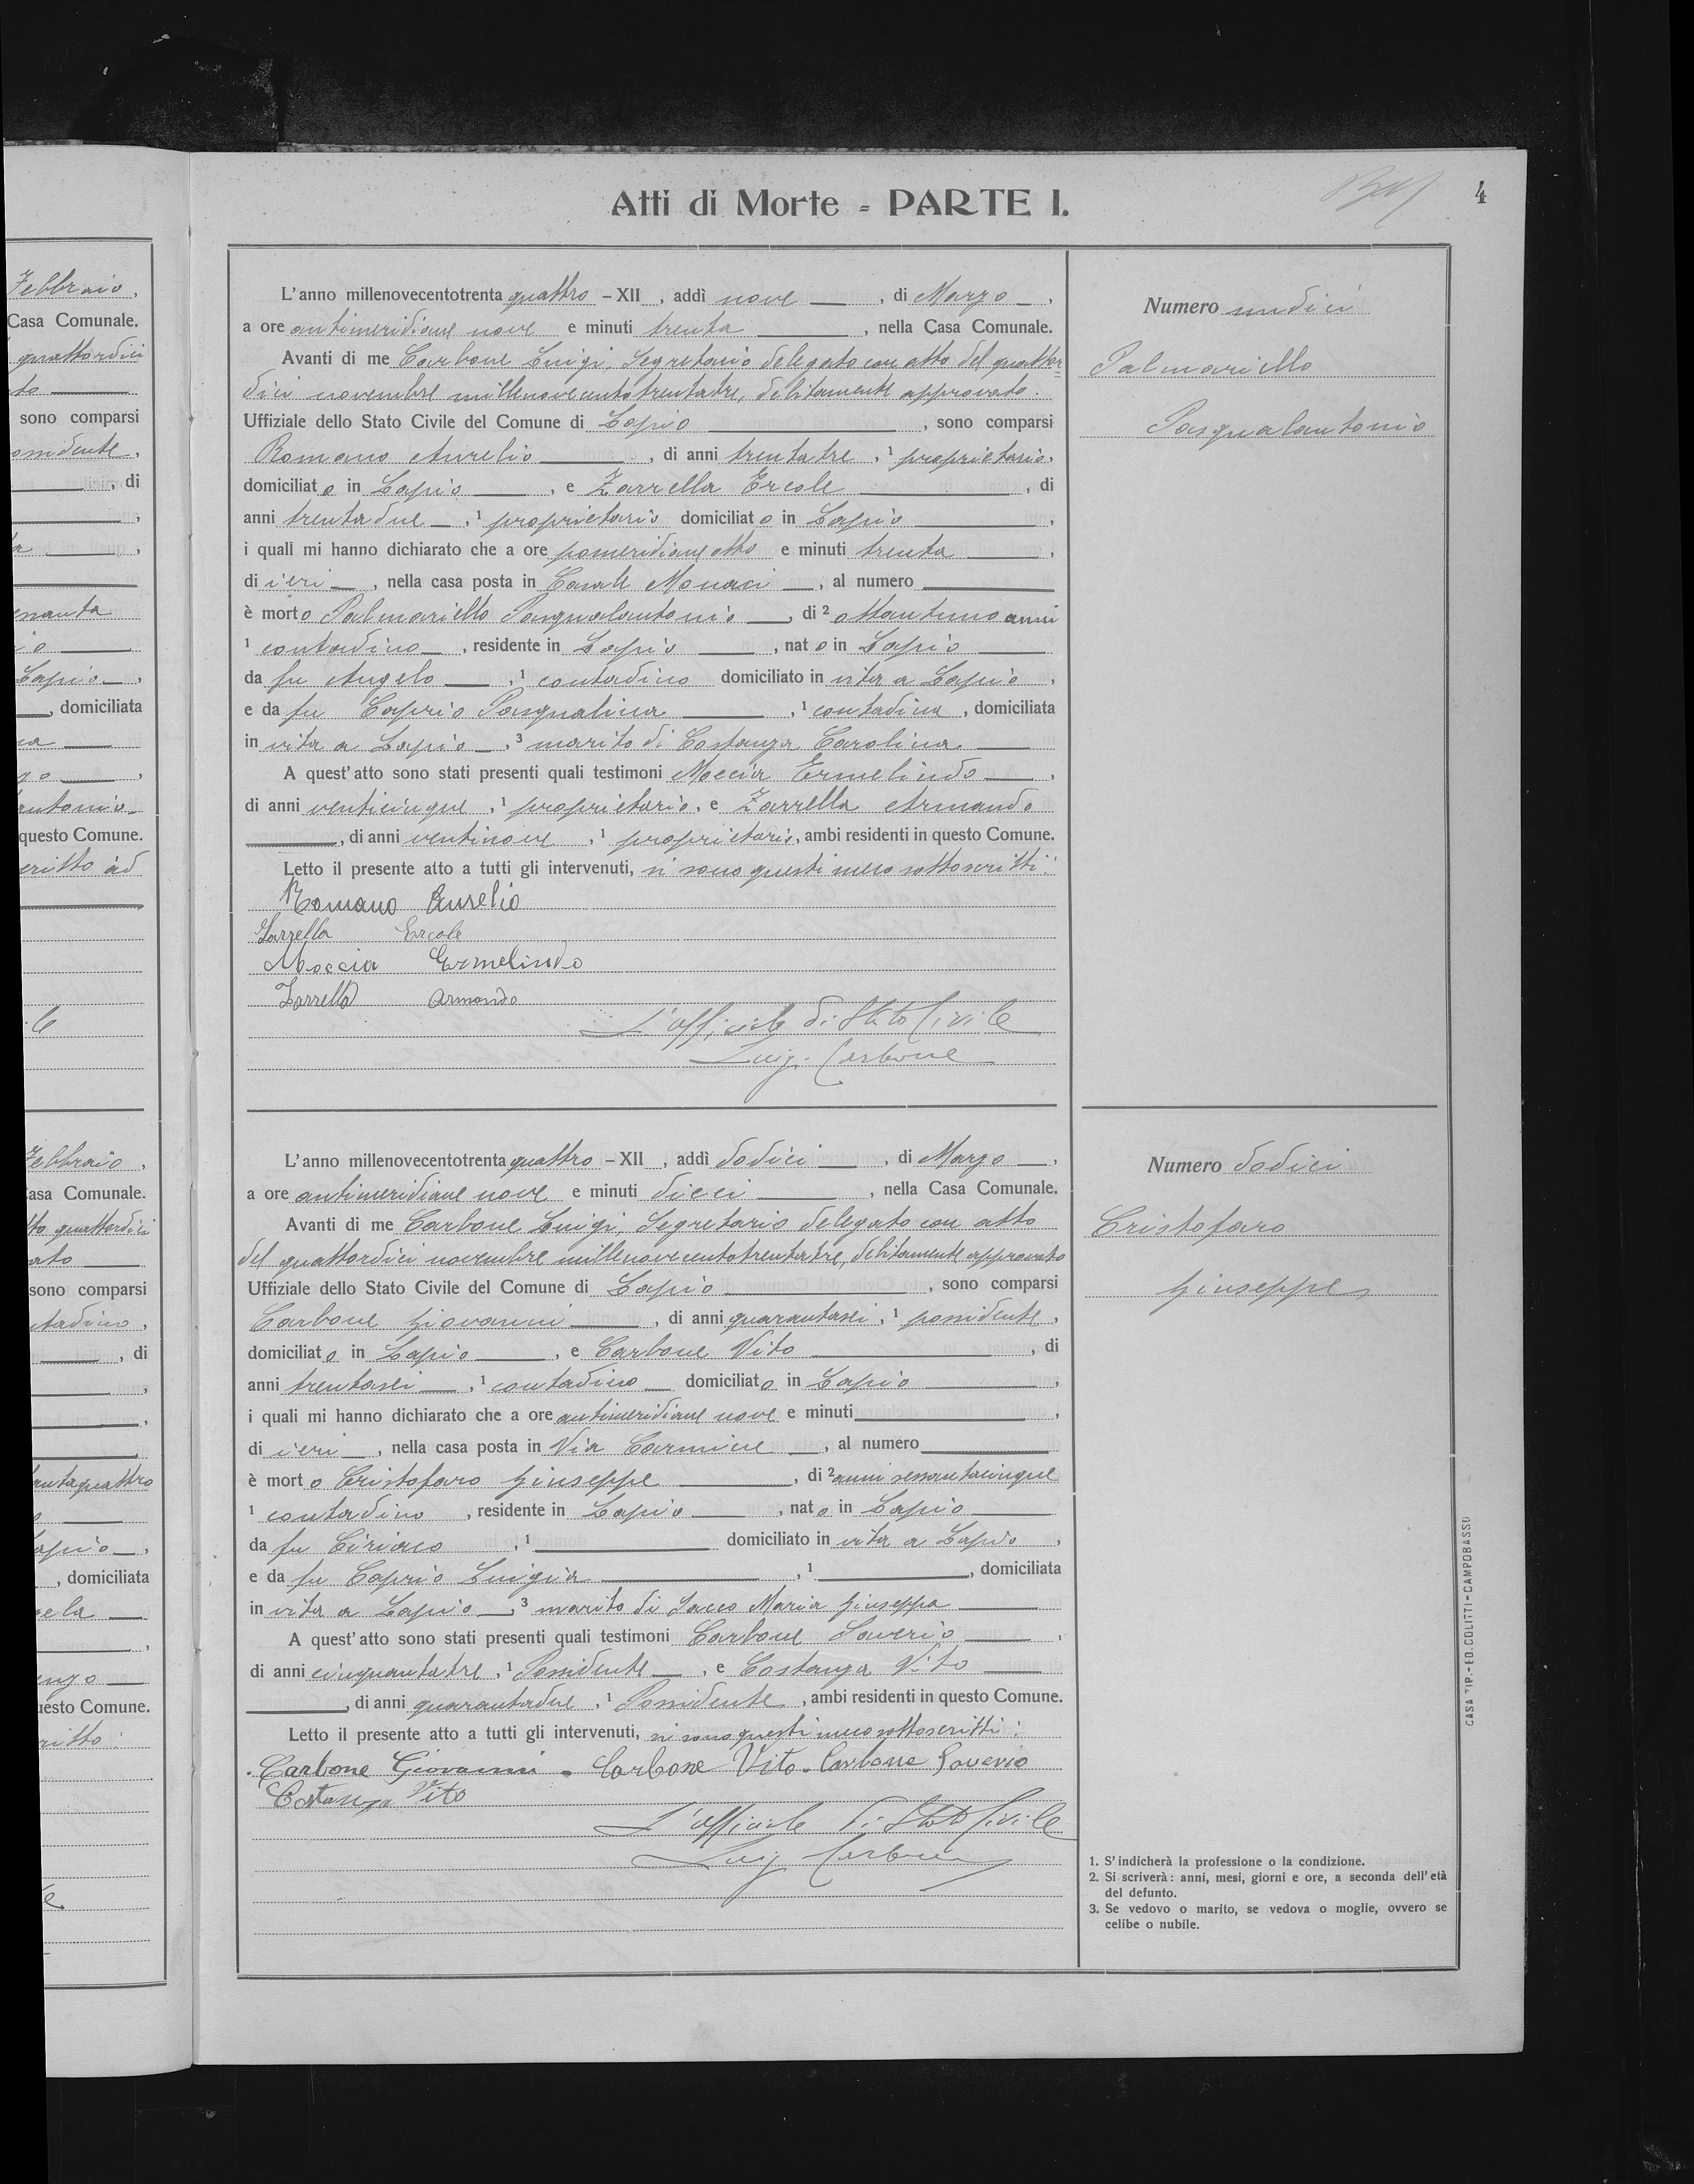 Atti di Morte = PARTE I.
4
L'anno millenovecentotrenta quattro – XII, addì nove, di Marzo,
a ore antimeridiane nove e minuti trenta, nella Casa Comunale.
Avanti di me Carbone Luigi, Segretario delegato con atto del quattor=
dici novembre millenovecentotrentatre, debitamente approvato.
Uffiziale dello Stato Civile del Comune di Lapio, sono comparsi
Romano Aurelio, di anni trentatre, 1 proprietario,
domiciliato in Lapio, e Zarrella Ercole, di
anni trentadue, 1 proprietario domiciliato in Lapio,
i quali mi hanno dichiarato che a ore pomeridiane otto e minuti trenta,
di ieri, nella casa posta in Casale Monaci, al numero
è morto Palmariello Pasqualantonio, di 2 ottantuno anni
1 contadino, residente in Lapio, nato in Lapio
da fu Angelo, 1 contadino domiciliato in vita a Lapio,
e da fu Caprio Pasqualina, 1 contadina, domiciliata
in vita a Lapio, 3 marito di Costanza Carolina.
A quest'atto sono stati presenti quali testimoni Moccia Ermelindo,
di anni venticinque, 1 proprietario, e Zarrella Armando
, di anni ventinove, 1 proprietario, ambi residenti in questo Comune.
Letto il presente atto a tutti gli intervenuti, si sono questi meco sottoscritti:
Romano Aurelio
Zarrella Ercole
Moccia Ermelindo
Zarrella Armando
L'officiale di Stato Civile
Luigi Carbone
Numero undici
Palmariello
Pasqualantonio
L'anno millenovecentotrenta quattro – XII, addì dodici, di Marzo,
a ore antimeridiane nove e minuti dieci, nella Casa Comunale.
Avanti di me Carbone Luigi, Segretario delegato con atto
del quattordici novembre millenovecentotrentatre, debitamente approvato
Uffiziale dello Stato Civile del Comune di Lapio, sono comparsi
Carbone Giovanni, di anni quarantasei, 1 possidente,
domiciliato in Lapio, e Carbone Vito, di
anni trentasei, 1 contadino domiciliato in Lapio,
i quali mi hanno dichiarato che a ore antimeridiane nove e minuti,
di ieri, nella casa posta in Via Carmine, al numero
è morto Cristofaro Giuseppe, di 2 anni sessantacinque
1 contadino, residente in Lapio, nato in Lapio
da fu Ciriaco, 1 domiciliato in vita a Lapio,
e da fu Caprio Luigia, 1, domiciliata
in vita a Lapio, 3 marito di Sacco Maria Giuseppa
A quest'atto sono stati presenti quali testimoni Carbone Saverio,
di anni cinquantatre, 1 Possidente, e Costanza Vito
, di anni quarantadue, 1 Possidente, ambi residenti in questo Comune.
Letto il presente atto a tutti gli intervenuti, si sono questi meco sottoscritti:
Carbone Giovanni - Carbone Vito - Carbone Saverio
Costanza Vito
L'officiale di Stato Civile
Luigi Carbone
Numero dodici
Cristofaro
Giuseppe
1. S'indicherà la professione o la condizione.
2. Si scriverà: anni, mesi, giorni e ore, a seconda dell'età
del defunto.
3. Se vedovo o marito, se vedova o moglie, ovvero se
celibe o nubile.
CASA TIP.-ED. COLITTI-CAMPOBASSO
Febbraio,
Casa Comunale.
quattordici
sono comparsi
, di
Lapio,
, domiciliata
questo Comune.
Febbraio,
asa Comunale.
tto quattordici
sono comparsi
tadino,
, di
antaquattro
apio,
, domiciliata
uesto Comune.